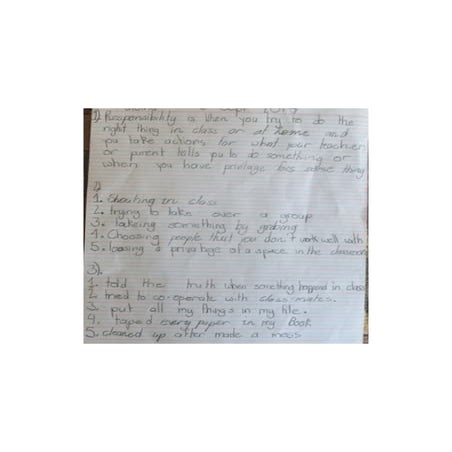 1) Responsibility is when you try to do the
right thing in class or at home and
you take actions for what your teachers
or parent tells you to do something or
when you have privlage for some thing
2)
1. Shouting in class
2. trying to take over a group
3. takeing something by grabing
4. Choosing people that you don't work well with
5. loosing a privalege of a space in the classroom
3).
1. told the truth when something happend in class
2. tried to co-operate with class mates.
3. put all my things in my file.
4. taped every paper in my Book
5. cleaned up after made a mess